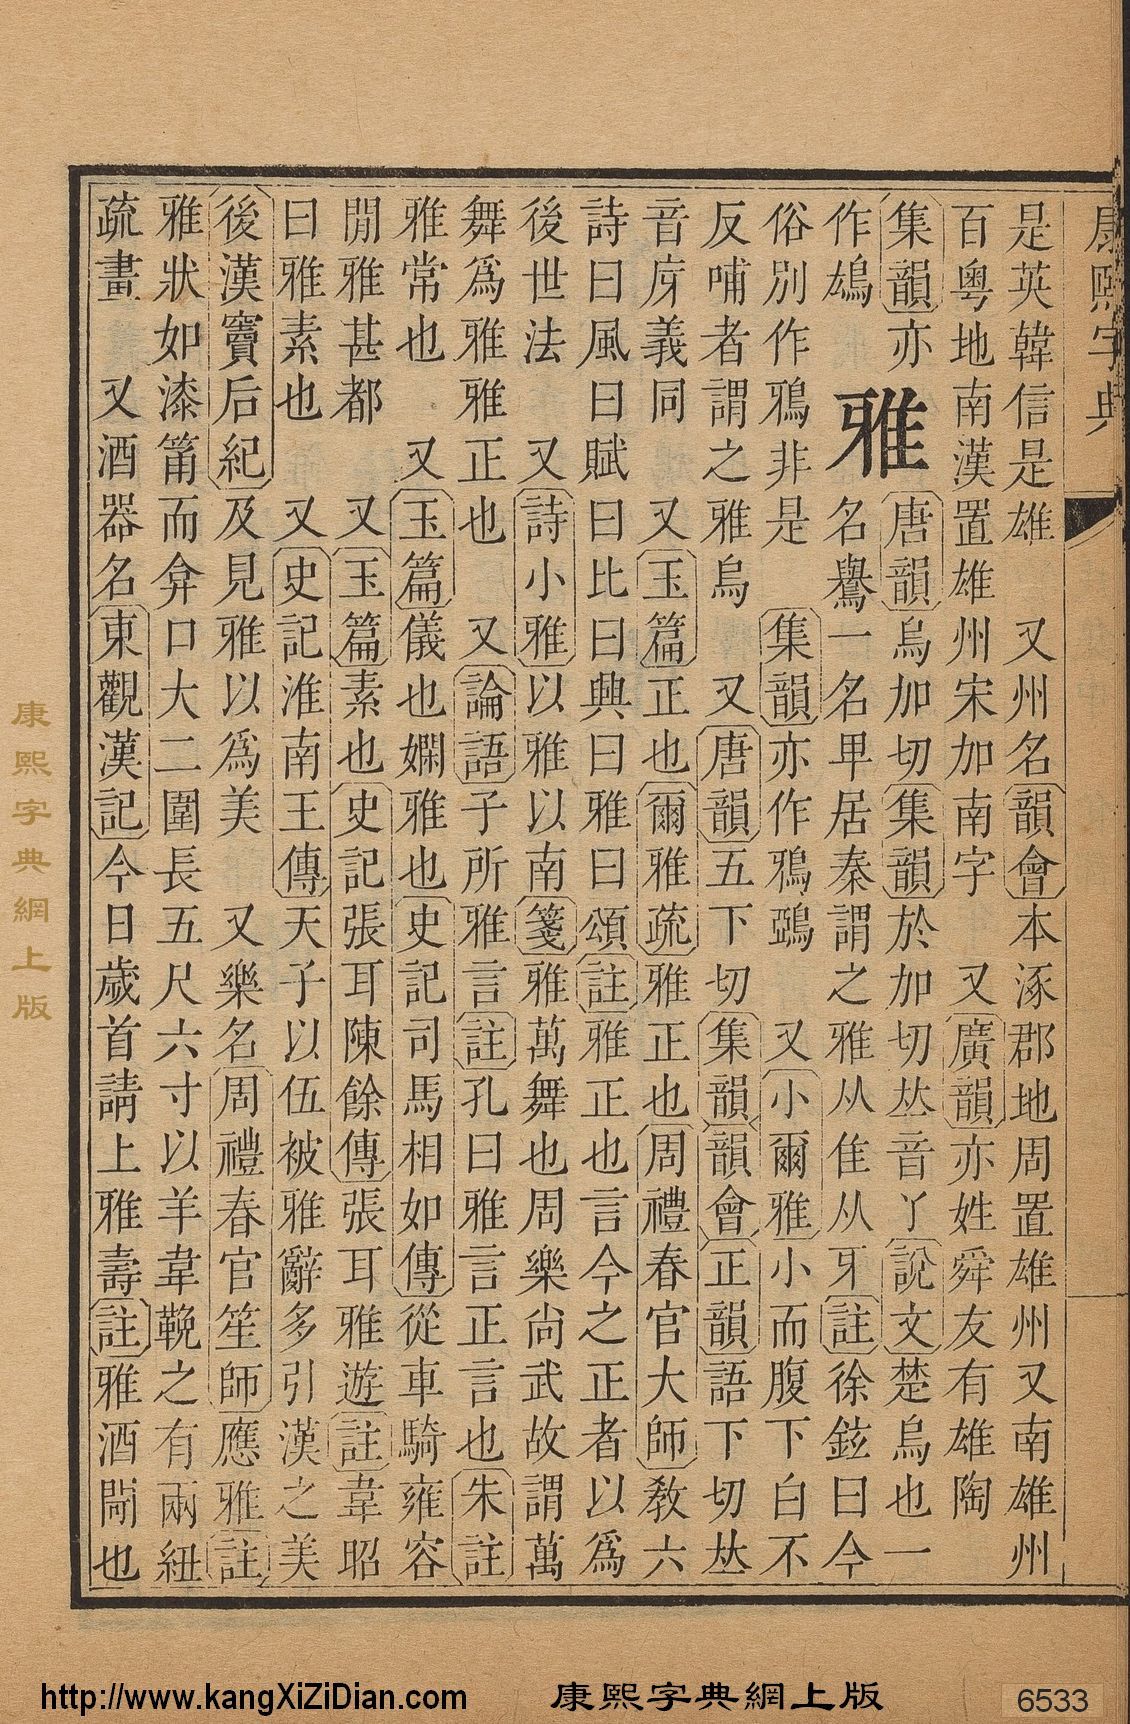 康熙字典
是英韓信是雄　又州名韻會本涿郡地周置雄州又南雄州
百粵地南漢置雄州宋加南字　又廣韻亦姓舜友有雄陶
集韻亦
作
雅
唐韻烏加切集韻於加切𠀤音丫說文楚烏也一
名鸒一名卑居秦謂之雅从隹从牙註徐鉉曰今
俗別作鴉非是　集韻亦作鴉鵶　又小爾雅小而腹下白不
反哺者謂之雅烏　又唐韻五下切集韻韻會正韻語下切𠀤
音庌義同　又玉篇正也爾雅疏雅正也周禮春官大師敎六
詩曰風曰賦曰比曰興曰雅曰頌註雅正也言今之正者以爲
後世法　又詩小雅以雅以南箋雅萬舞也周樂尚武故謂萬
舞爲雅雅正也　又論語子所雅言註孔曰雅言正言也朱註
雅常也　又玉篇儀也嫻雅也史記司馬相如傳從車騎雍容
閒雅甚都　又玉篇素也史記張耳陳餘傳張耳雅遊註韋昭
曰雅素也　又史記淮南王傳天子以伍被雅辭多引漢之美
後漢竇后紀及見雅以爲美　又樂名周禮春官笙師應雅註
雅狀如漆筩而弇口大二圍長五尺六寸以羊韋鞔之有兩紐
疏畫　又酒器名東觀漢記今日歲首請上雅壽註雅酒閜也
康熙字典網上版
http://www.kangXiZiDian.com
康熙字典網上版
6533